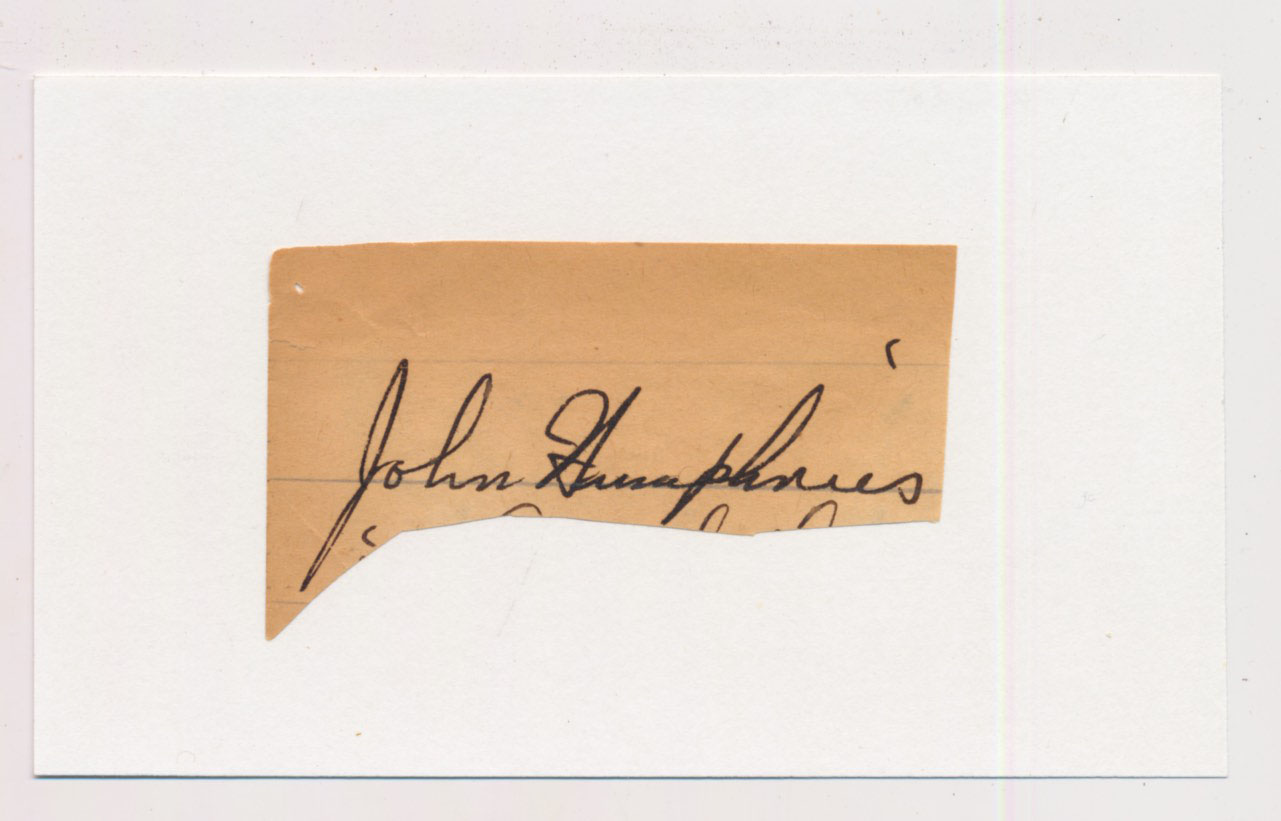 John Humphries